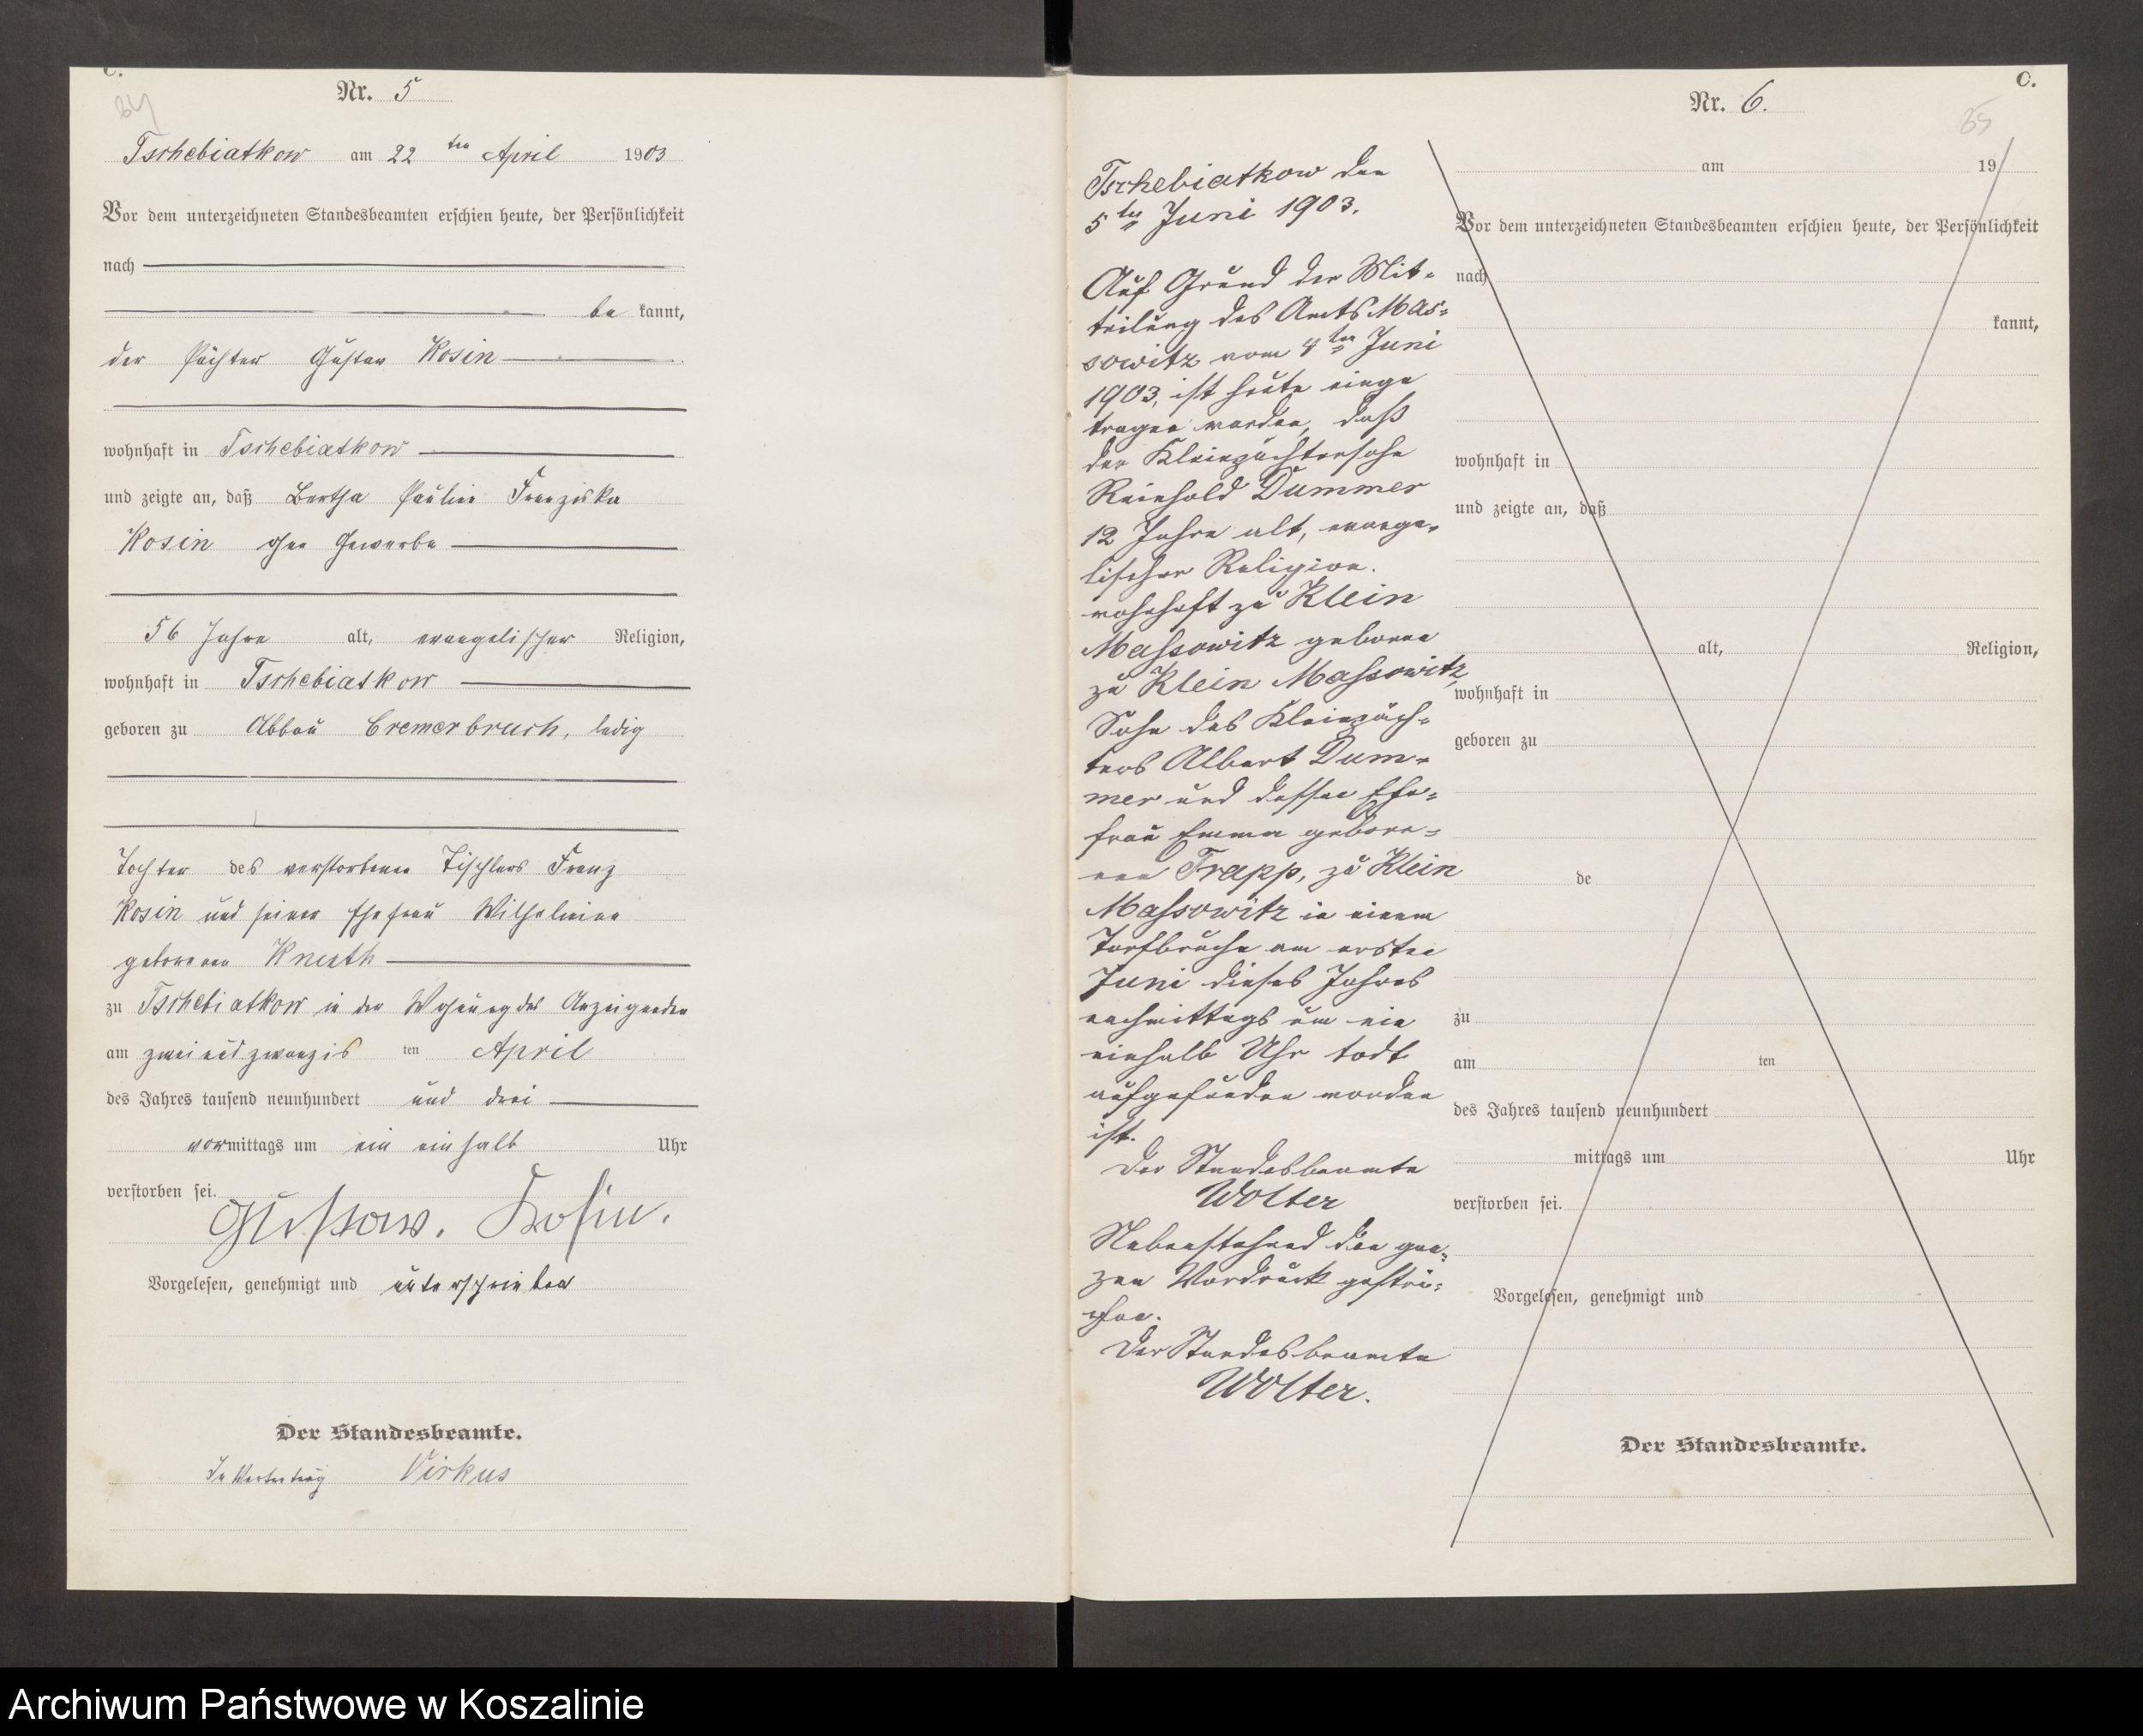 C.
34
Nr. 5
Tschebiatkow am 22 ten April 1903
Vor dem unterzeichneten Standesbeamten erschien heute, der Persönlichkeit
nach
be kannt,
der Pächter Gustav Kosin
wohnhaft in Tschebiatkow
und zeigte an, daß Bertha Pauline Franziska
Kosin ohne Gewerbe
56 Jahre alt, evangelischer Religion,
wohnhaft in Tschebiatkow
geboren zu Abbau Cremerbruch, ledig
Tochter des verstorbenen Tischlers Franz
Kosin und seiner Ehefrau Wilhelmine
geborenen Knuth
zu Tschebiatkow in der Wohnung des Anzeigenden
am zweiundzwanzigs ten April
des Jahres tausend neunhundert und drei
vormittags um ein einhalb Uhr
verstorben sei.
Gustaw. Kosin.
Vorgelesen, genehmigt und unterschrieben
Der Standesbeamte.
In Vertretung Virkus
C.
35
Nr. 6.
Tschebiatkow den
5ten Juni 1903.
Auf Grund der Mit-
teilung des Amts Mas-
sowitz vom 4ten Juni
1903, ist heute einge
tragen worden, daß
der Kleinpächtersohn
Reinhold Dummer
12 Jahre alt, evange-
lischer Religion.
wohnhaft zu Klein
Massowitz geboren
zu Klein Massowitz,
Sohn des Kleinpäch-
ters Albert Dum-
mer und dessen Ehe-
frau Emma gebore-
nen Trapp, zu Klein
Massowitz in einem
Torfbruche am ersten
Juni dieses Jahres
nachmittags um ein
einhalb Uhr todt
aufgefunden worden
ist.
Der Standesbeamte
Wolter
Nebenstehend den gan-
zen Vordruck gestri-
chen.
Der Standesbeamte
Wolter.
am 19
Vor dem unterzeichneten Standesbeamten erschien heute, der Persönlichkeit
nach
kannt,
wohnhaft in
und zeigte an, daß
alt, Religion,
wohnhaft in
geboren zu
de
zu
am ten
des Jahres tausend neunhundert
mittags um Uhr
verstorben sei.
Vorgelesen, genehmigt und
Der Standesbeamte.
Archiwum Państwowe w Koszalinie